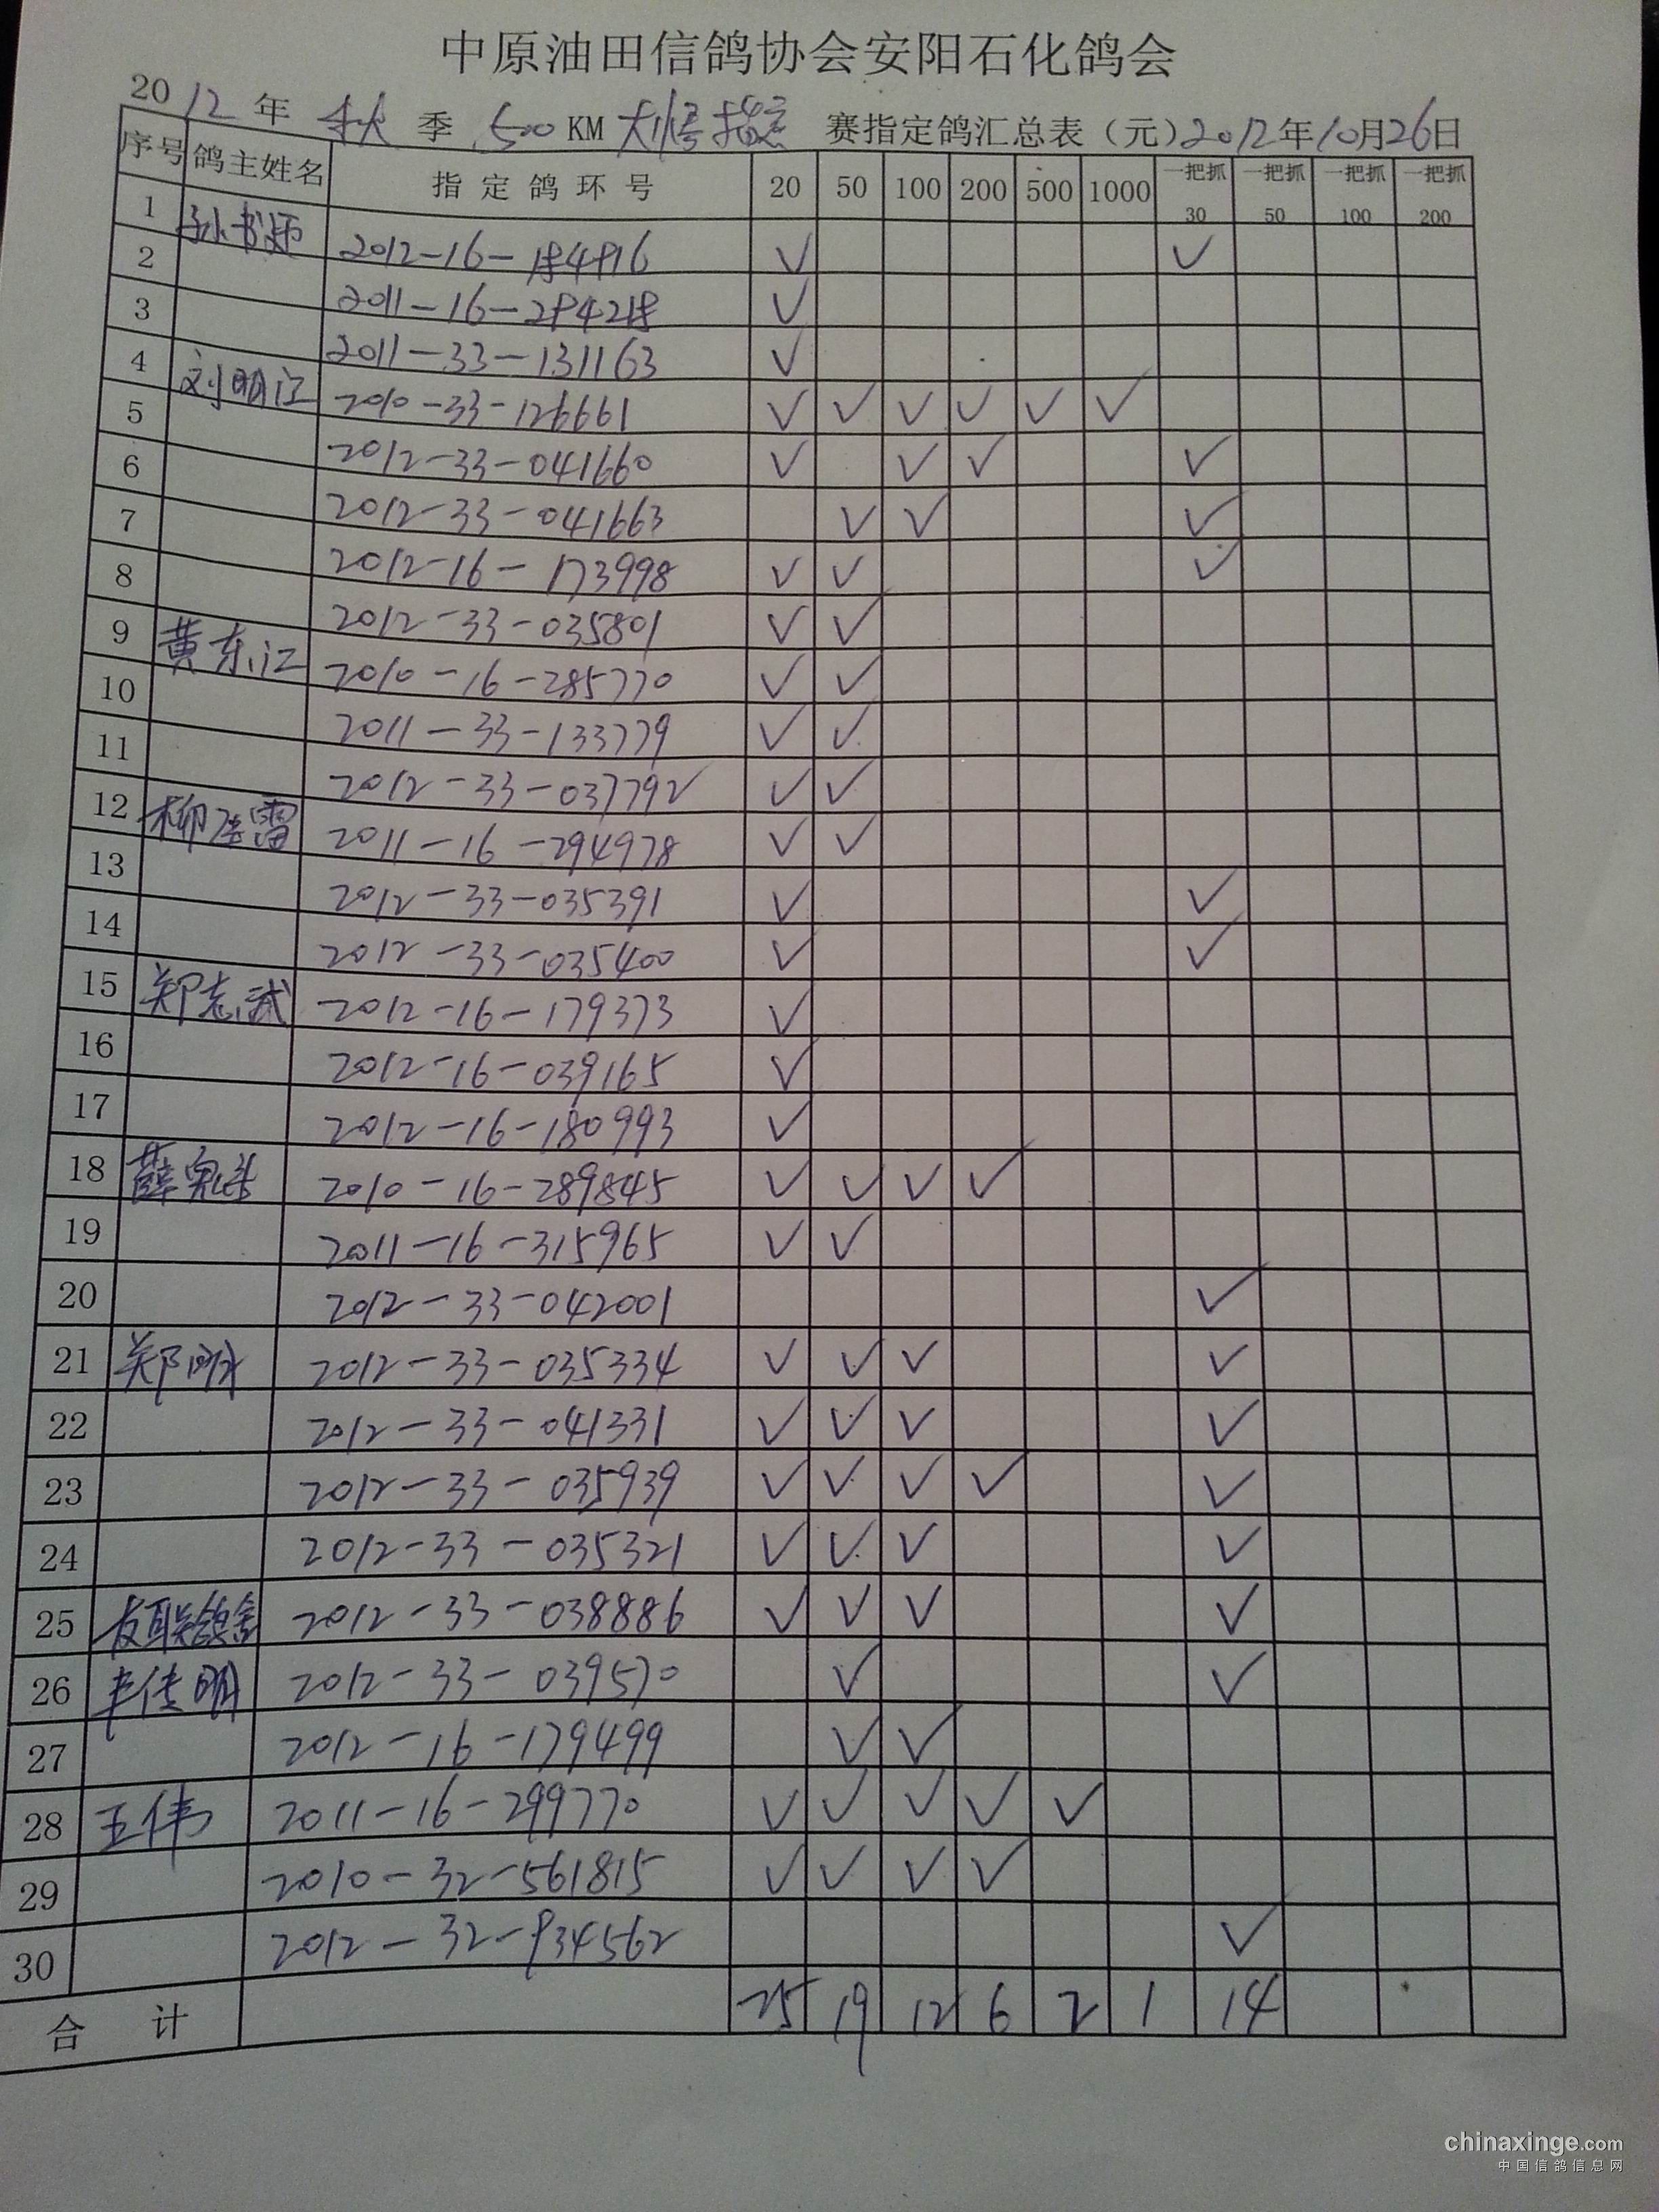 中原油田信鸽协会安阳石化鸽会
2012年 秋 季 500KM 大师号指定 赛指定鸽汇总表（元）2012年10月26日
序号 鸽主姓名 指定鸽环号 20 50 100 200 500 1000 一把抓30 一把抓50 一把抓100 一把抓200
1 2012-16- √ √
2 2011-16- √
3 2011-33-131163 √
4 刘明江 2010-33-126661 √ √ √ √ √ √
5 2012-33-041660 √ √ √ √
6 2012-33-041663 √ √ √
7 2012-16-173998 √ √ √
8 2012-33-035801 √ √
9 黄东江 2010-16-285770 √ √
10 2011-33-133779 √ √
11 2012-33-037792 √ √
12 2011-16-294978 √ √
13 2012-33-035391 √ √
14 2012-33-035400 √ √
15 郑志武 2012-16-179373 √
16 2012-16-039165 √
17 2012-16-180993 √
18 2010-16-289845 √ √ √ √
19 2011-16-315965 √ √
20 2012-33-042001 √
21 2012-33-035334 √ √ √ √
22 2012-33-041331 √ √ √ √
23 2012-33-035939 √ √ √ √ √
24 2012-33-035321 √ √ √ √
25 友联鸽舍 2012-33-038886 √ √ √ √
26 2012-33-039570 √ √
27 2012-16-179499 √ √
28 王伟 2011-16-299770 √ √ √ √ √
29 2010-32-561815 √ √ √ √
30 2012-32-934562 √
合计 25 19 12 6 2 1 14
chinaxinge.com
中国信鸽信息网